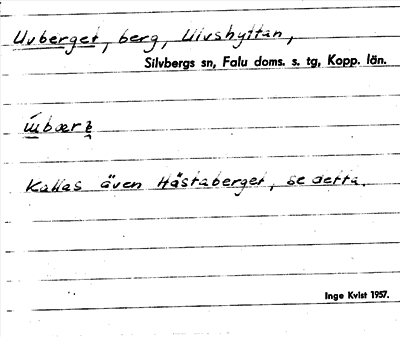 Uvberget, berg, Ulvshyttan,
Silvbergs sn, Falu doms. s. tg, Kopp. län.
Kallas även Håstaberget, se detta.
Inge Kvist 1957.